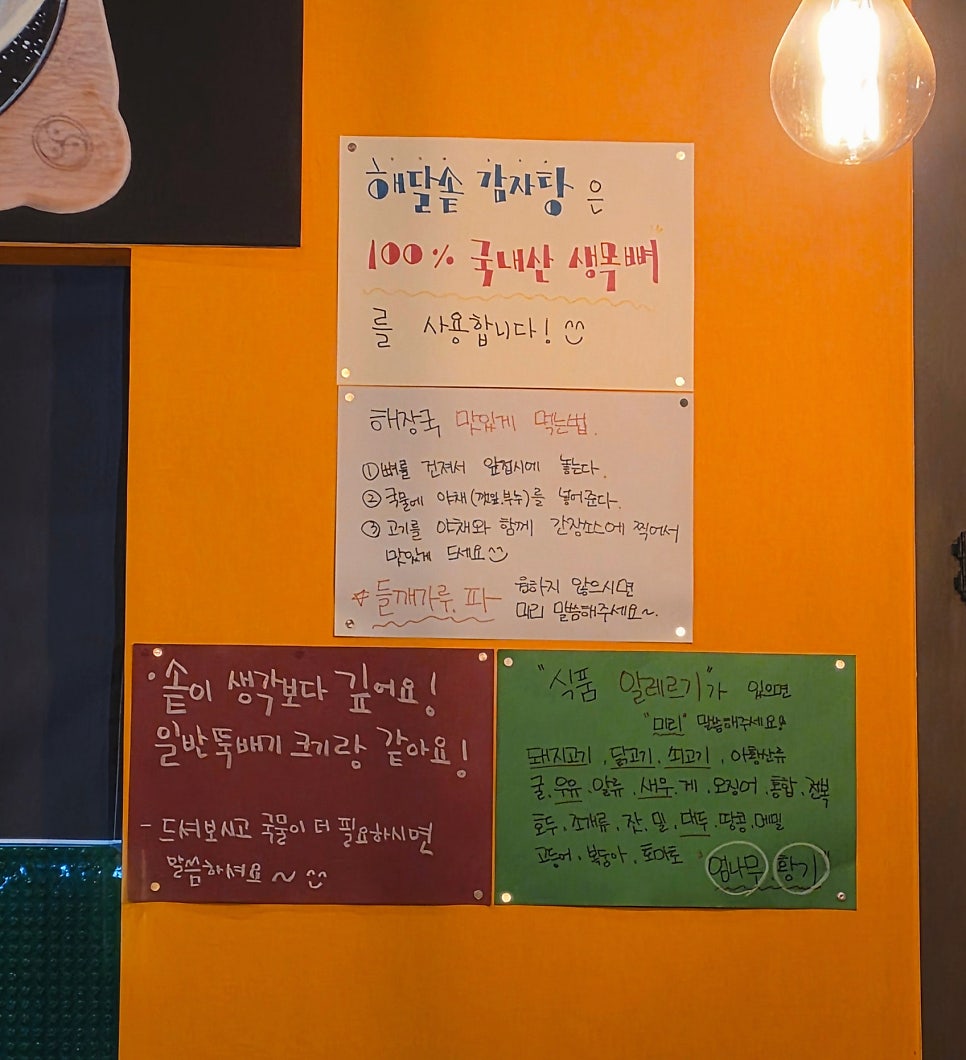 해달솥 감자탕 은
100% 국내산 생목뼈
를 사용합니다!
해장국 맛있게 먹는법.
①뼈를 건져서 앞접시에 놓는다.
②국물에 야채(깻잎.부추)를 넣어준다.
③고기를 야채와 함께 간장소스에 찍어서
맛있게 드세요
들깨가루, 파
원하지 않으시면
미리 말씀해주세요~.
솥이 생각보다 깊어요!
일반뚝배기 크기랑 같아요!
- 드셔보시고 국물이 더 필요하시면
말씀하셔요 ~
"식품 알레르기"가 있으면
"미리" 말씀해주세요!
돼지고기, 닭고기, 쇠고기, 아황산류
굴.우유.알류.새우.게.오징어.홍합.전복
호두.조개류.잣.밀.대두.땅콩.메밀
고등어.복숭아.토마토 "엄나무 황기"